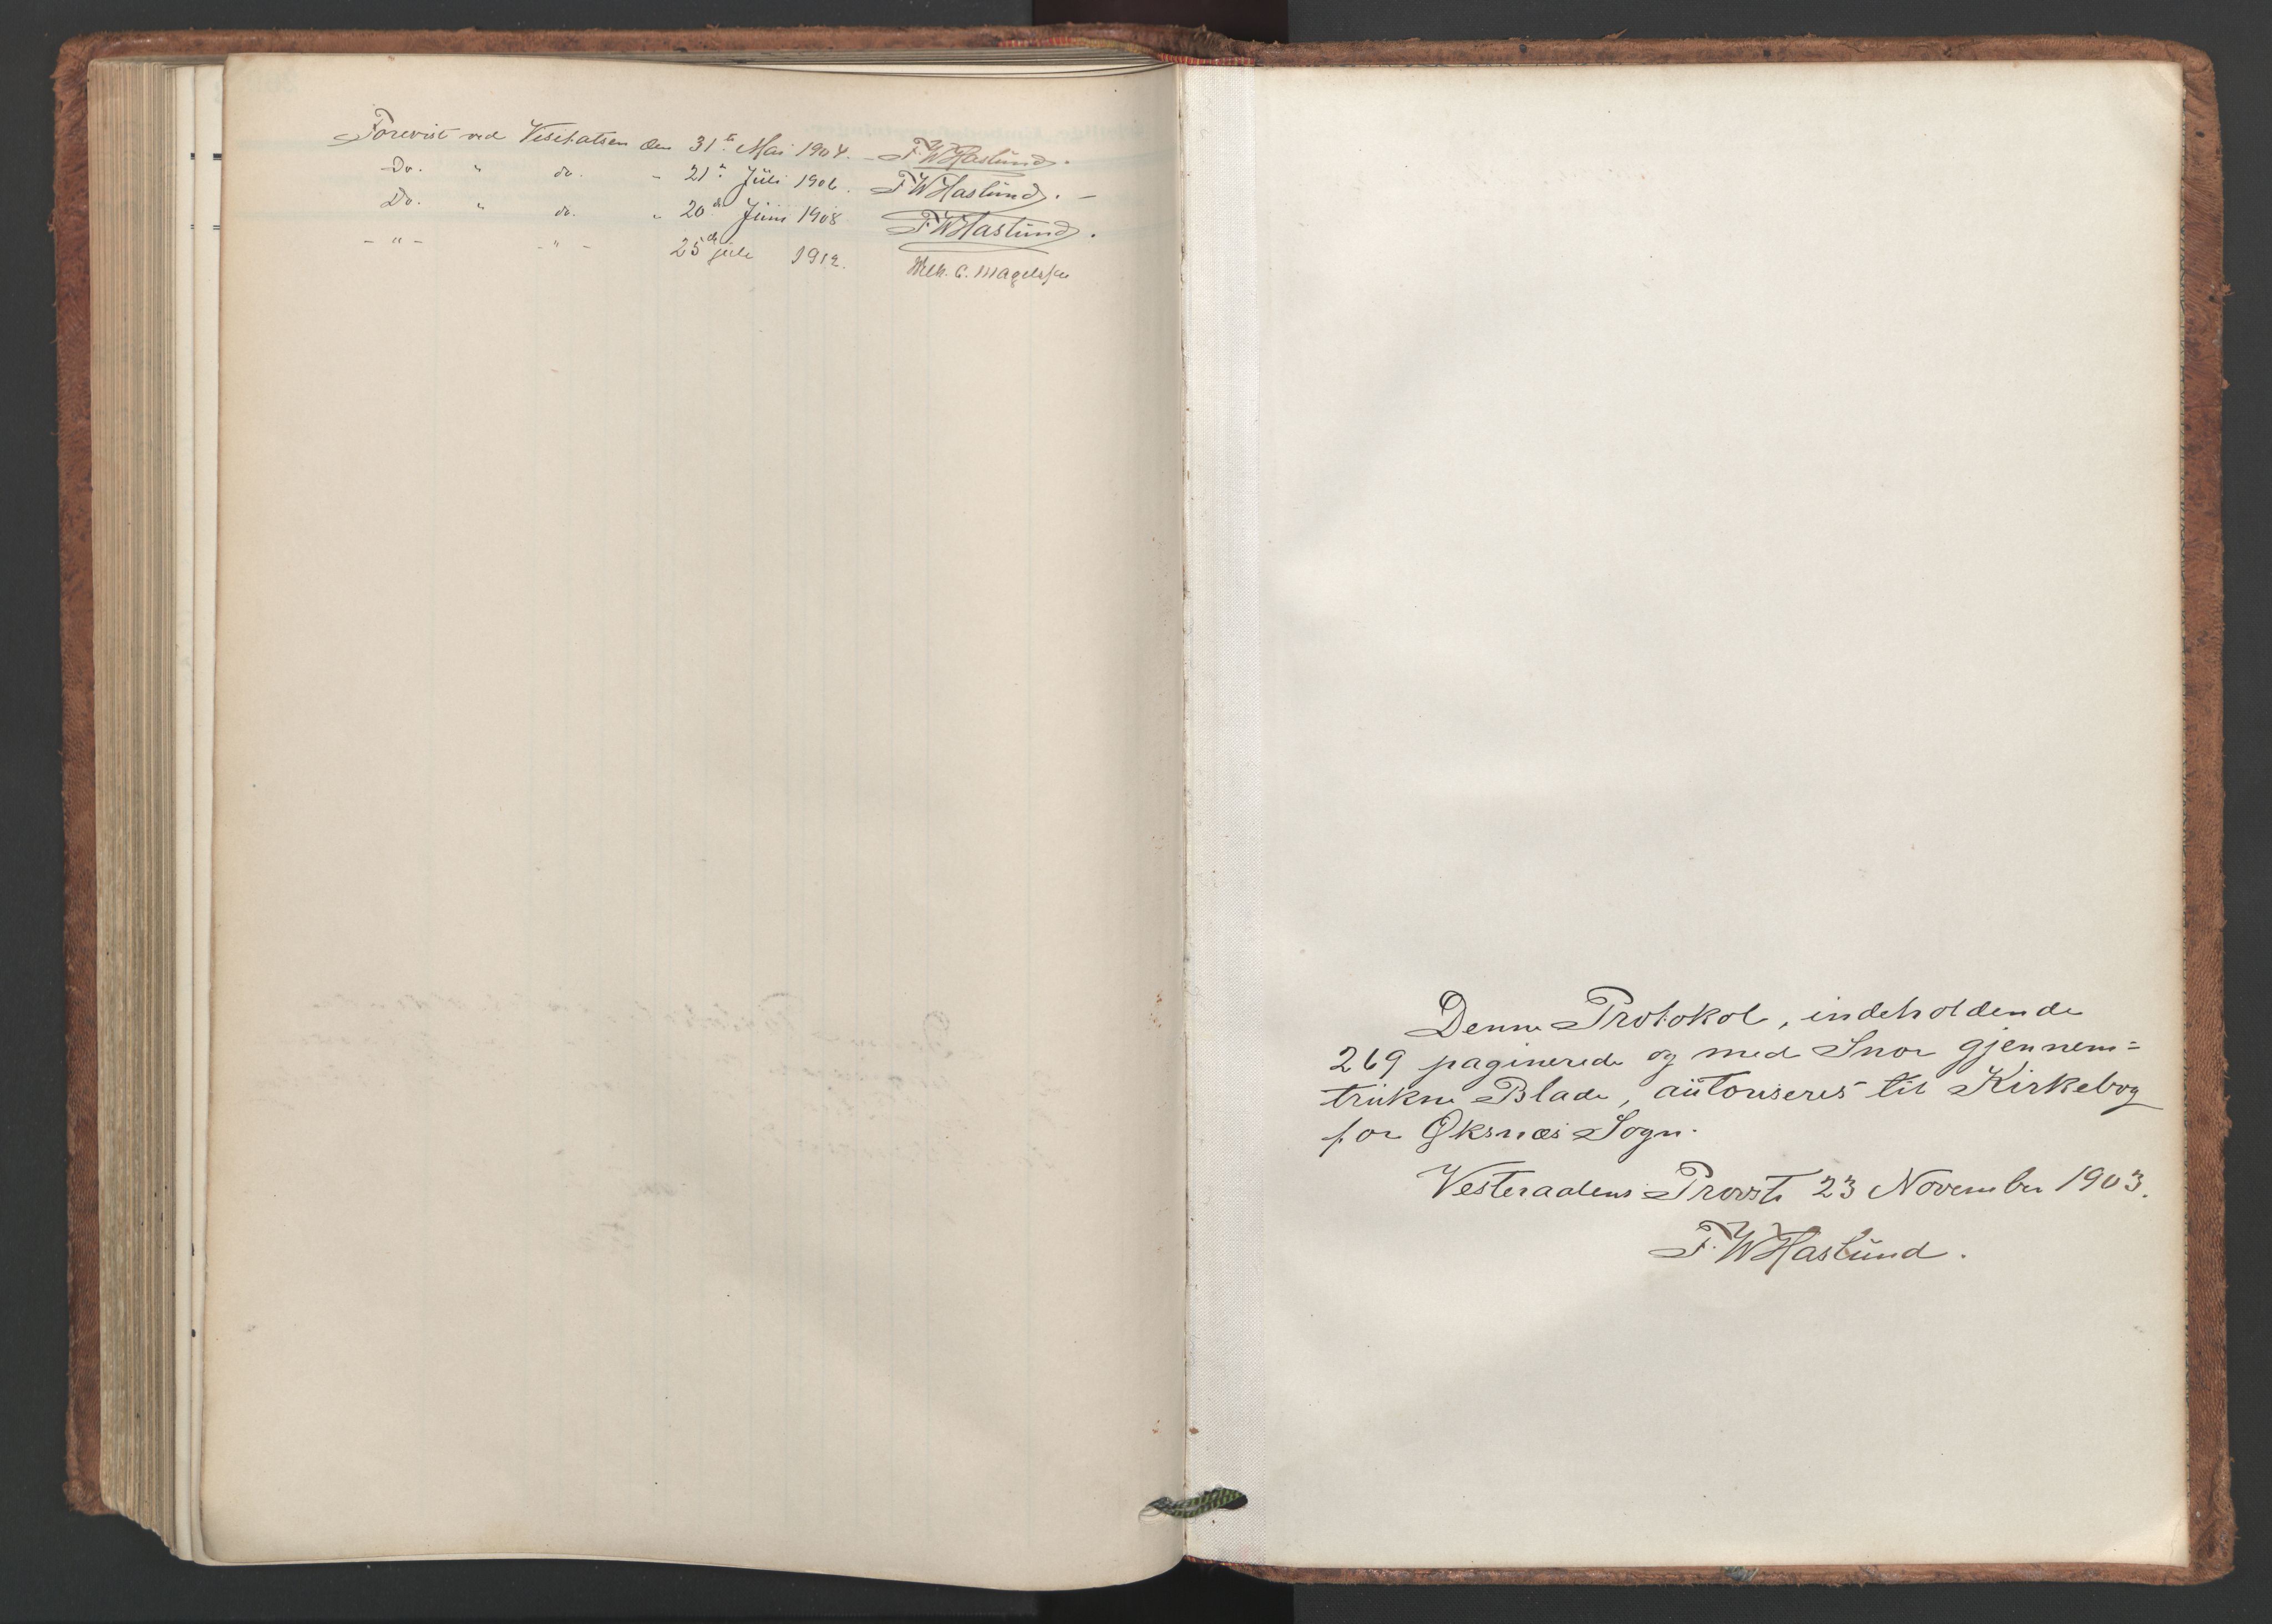 Forevist ved Visitatsen den 31te Mai 1904. - F.W Haslund.
Do. " do. " 21de Juli 1906. F W Haslund. -
Do. " do. " 20de Juni 1908 F W Haslund.
- " - - " - 25de juli 1912. Wilh. C. Magelssen
Denne Protokol, indeholdende
269 paginerede og med Snor gjennem=
trukne Blade, autoriseres til Kirkebog
for Øksnæs Sogn.
Vesteraalens Provsti 23 November 1903.
F. W Haslund.